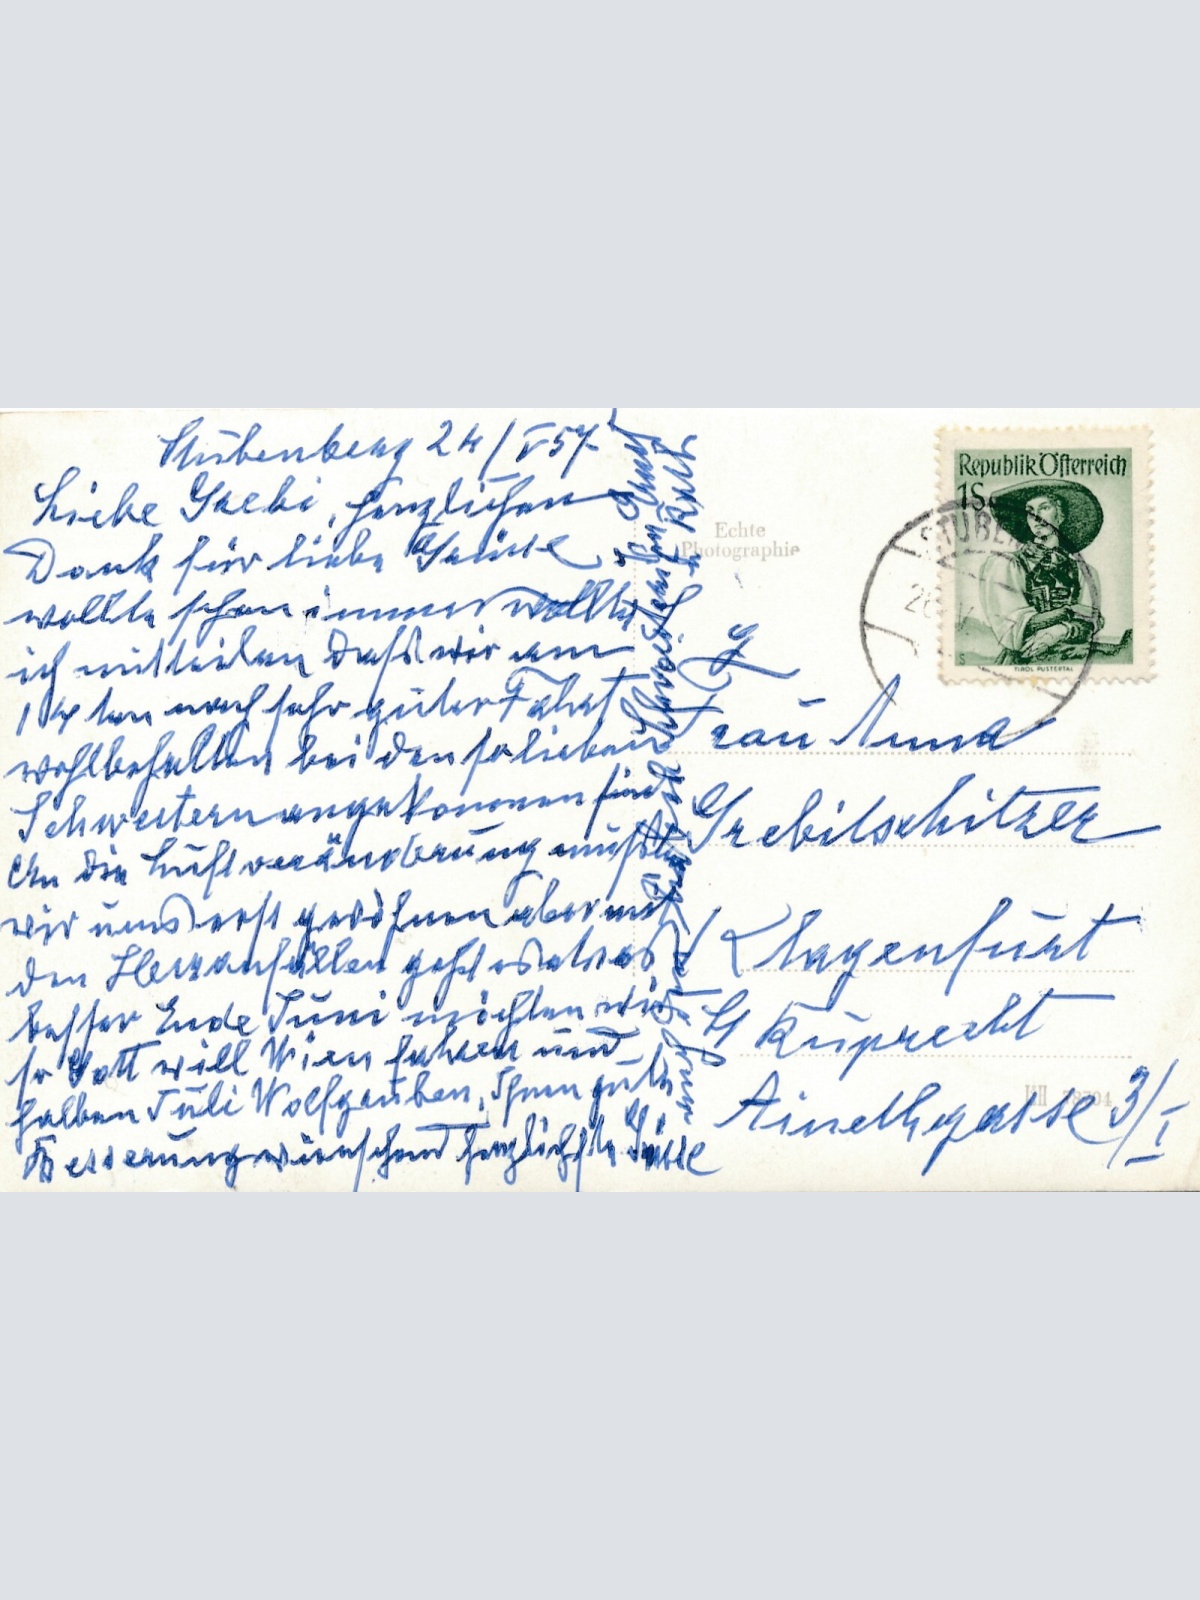 Stubenberg 24/V 57
Liebe Grebi, herzlichen
Dank für liebe Grüsse
wollte schon immer
ich mitteilen daß wir am
14 ten nach sehr guter Fahrt
wohlbehalten bei den so lieben
Schwestern angekommen sind
An die Luftveränderung mußten
wir uns erst gewöhnen aber mit
den Herzanfällen geht es etwas
besser Ende Juni möchten wir
so Gott will Wien fahren und
halben Juli Wolfgauben, Ihnen gute
Besserung wünschend herzlichste Grüsse
Echte
Photographie
Republik Österreich
1S
TIROL PUSTERTAL
STUBEN
Frau Anna
Grebitschitzer
Klagenfurt
St Ruprecht
Ainethgasse 3/I